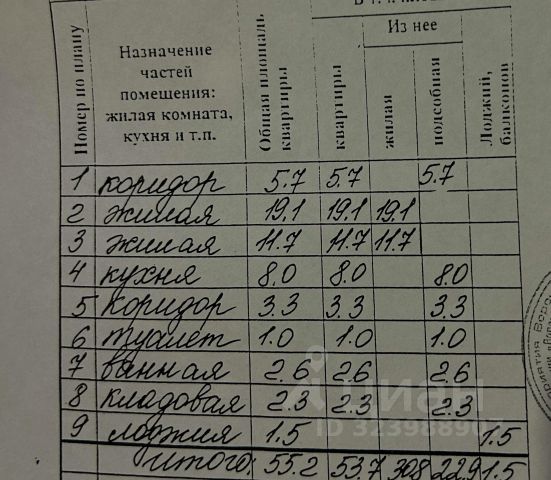 Из нее
Номер по плану
Назначение частей помещения: жилая комната, кухня и т.п.
Общая площадь квартиры
квартиры
жилая
подсобная
Лоджий, балконов
1 коридор 5.7 5.7 5.7
2 жилая 19.1 19.1 19.1
3 жилая 11.7 11.7 11.7
4 кухня 8.0 8.0 8.0
5 коридор 3.3 3.3 3.3
6 туалет 1.0 1.0 1.0
7 ванная 2.6 2.6 2.6
8 кладовая 2.3 2.3 2.3
9 лоджия 1.5 1.5
Итого: 55.2 53.7 30.8 22.9 1.5
циан